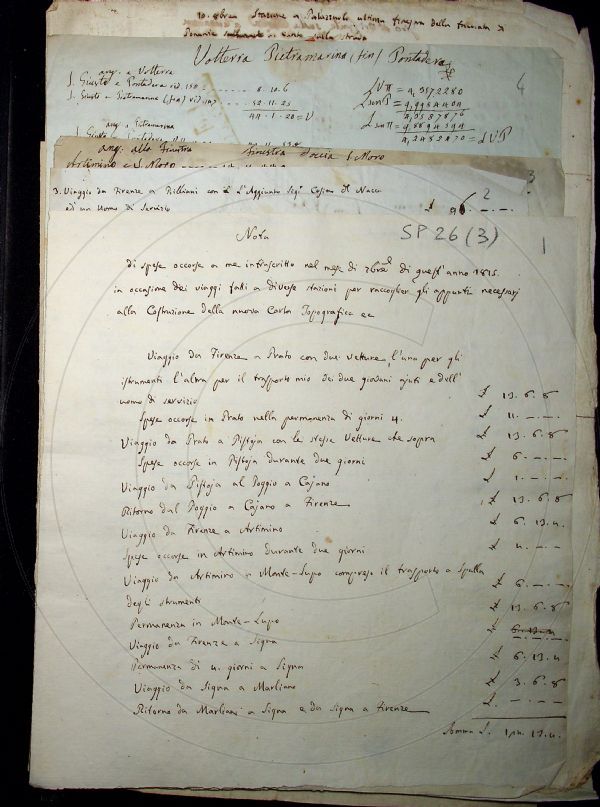 10. obre Stazione a Palazzuolo ultima finestra della facciata
Volterra Pietramarina (fin) Pontadera
4
ang. a Volterra
S. Giusto e Pontadera vid 150 - - - - 8. 10. 6
S. Giusto e Pietramarina (fin) vid 147 - - - - 52. 11. 25
44. 1. 20 = V
ang. a Pietramarina
LVπ = 4,3572280
LsenP = 9,9984404
4,3587876
Lsenπ =
= LVP
ang. alla finestra finestra Doccia S. Moro
Artimino e S. Moro
3
3. Viaggio da Firenze a con L'Aggiunto Sigr Cosimo Del Nacca
ed un Uomo di Servizio £ 96 - . -
2
SP 26 (3)
1
Nota
di spese occorse a me infrascritto nel mese di 7bre di quest'anno 1815.
in occasione dei viaggi fatti a diverse stazioni per raccoglier gli appunti necessarj
alla Costruzione della nuova Carta Topografica ec
Viaggio da Firenze a Prato con due Vetture, l'una per gli
istrumenti l'altra per il trasporto mio dei due giovani ajuti e dell'
uomo di servizio £ 13. 6. 8
Spese occorse in Prato nella permanenza di giorni 4. £ 11. - . -
Viaggio da Prato a Pistoja con le stesse Vetture che sopra £ 13. 6. 8
Spese occorse in Pistoja durante due giorni £ 6. - . -
Viaggio da Pistoja al Poggio a Cajano £ 1. - . -
Ritorno dal Poggio a Cajano a Firenze £ 13. 6. 8
Viaggio da Firenze a Artimino £ 6. 13. 4.
Spese occorse in Artimino durante due giorni £ 4. - . -
Viaggio da Artimino a Monte-Lupo compreso il trasporto a Spalla
degli strumenti £ 6. - . -
Permanenza in Monte-Lupo £ 13. 6. 8
Viaggio da Firenze a Signa £
Permanenza di 4. giorni a Signa £ 6. 13. 4
Viaggio da Signa a Marliano £ 3. 6. 8
Ritorno da Marliano a Signa e da Signa a Firenze £ . - . -
Somma £. 13. 4.